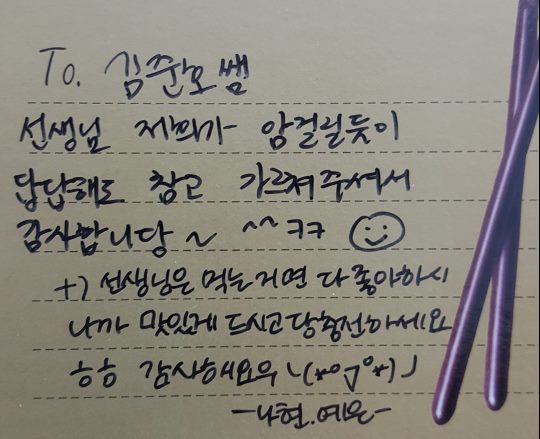 To. 김준호쌤
선생님 저희가 암걸릴듯이
답답해도 참고 가르쳐주셔서
감사합니당~ ^^ ㅋㅋ
+) 선생님은 먹는거면 다 좋아하시
니까 맛있게 드시고 당충전하세요
ㅎㅎ 감사해요우 ╰(*°▽°*)╯
-나현.예은-